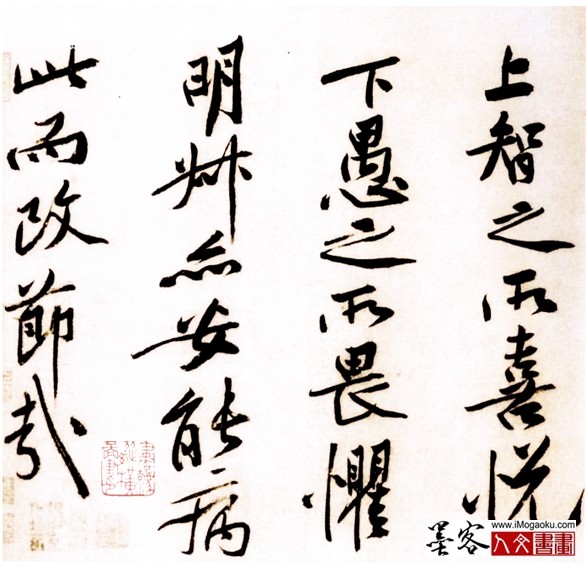 上智之所喜悅
下愚之所畏懼
明叔亦安能病
此而改節哉
墨客
www.iMogaoku.com
人文書畫